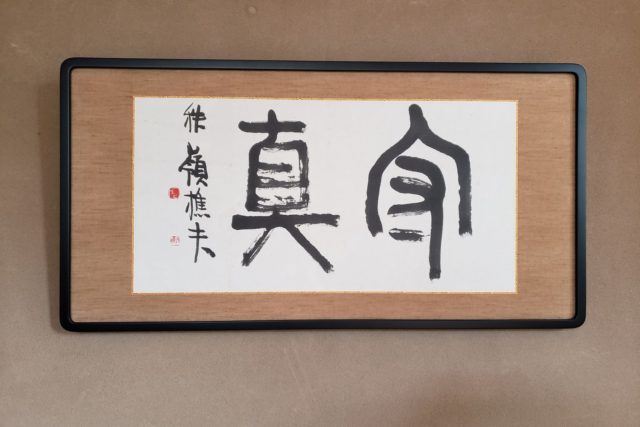 守真
嶺樵夫